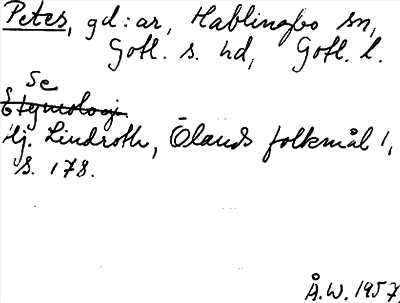 Petes, gd:ar, Hablingbo sn,
Gotl. s. hd, Gotl. l.
Se
Etymologi
Hj. Lindroth, Ölands folkmål 1,
s. 178.
Å.W. 1957.